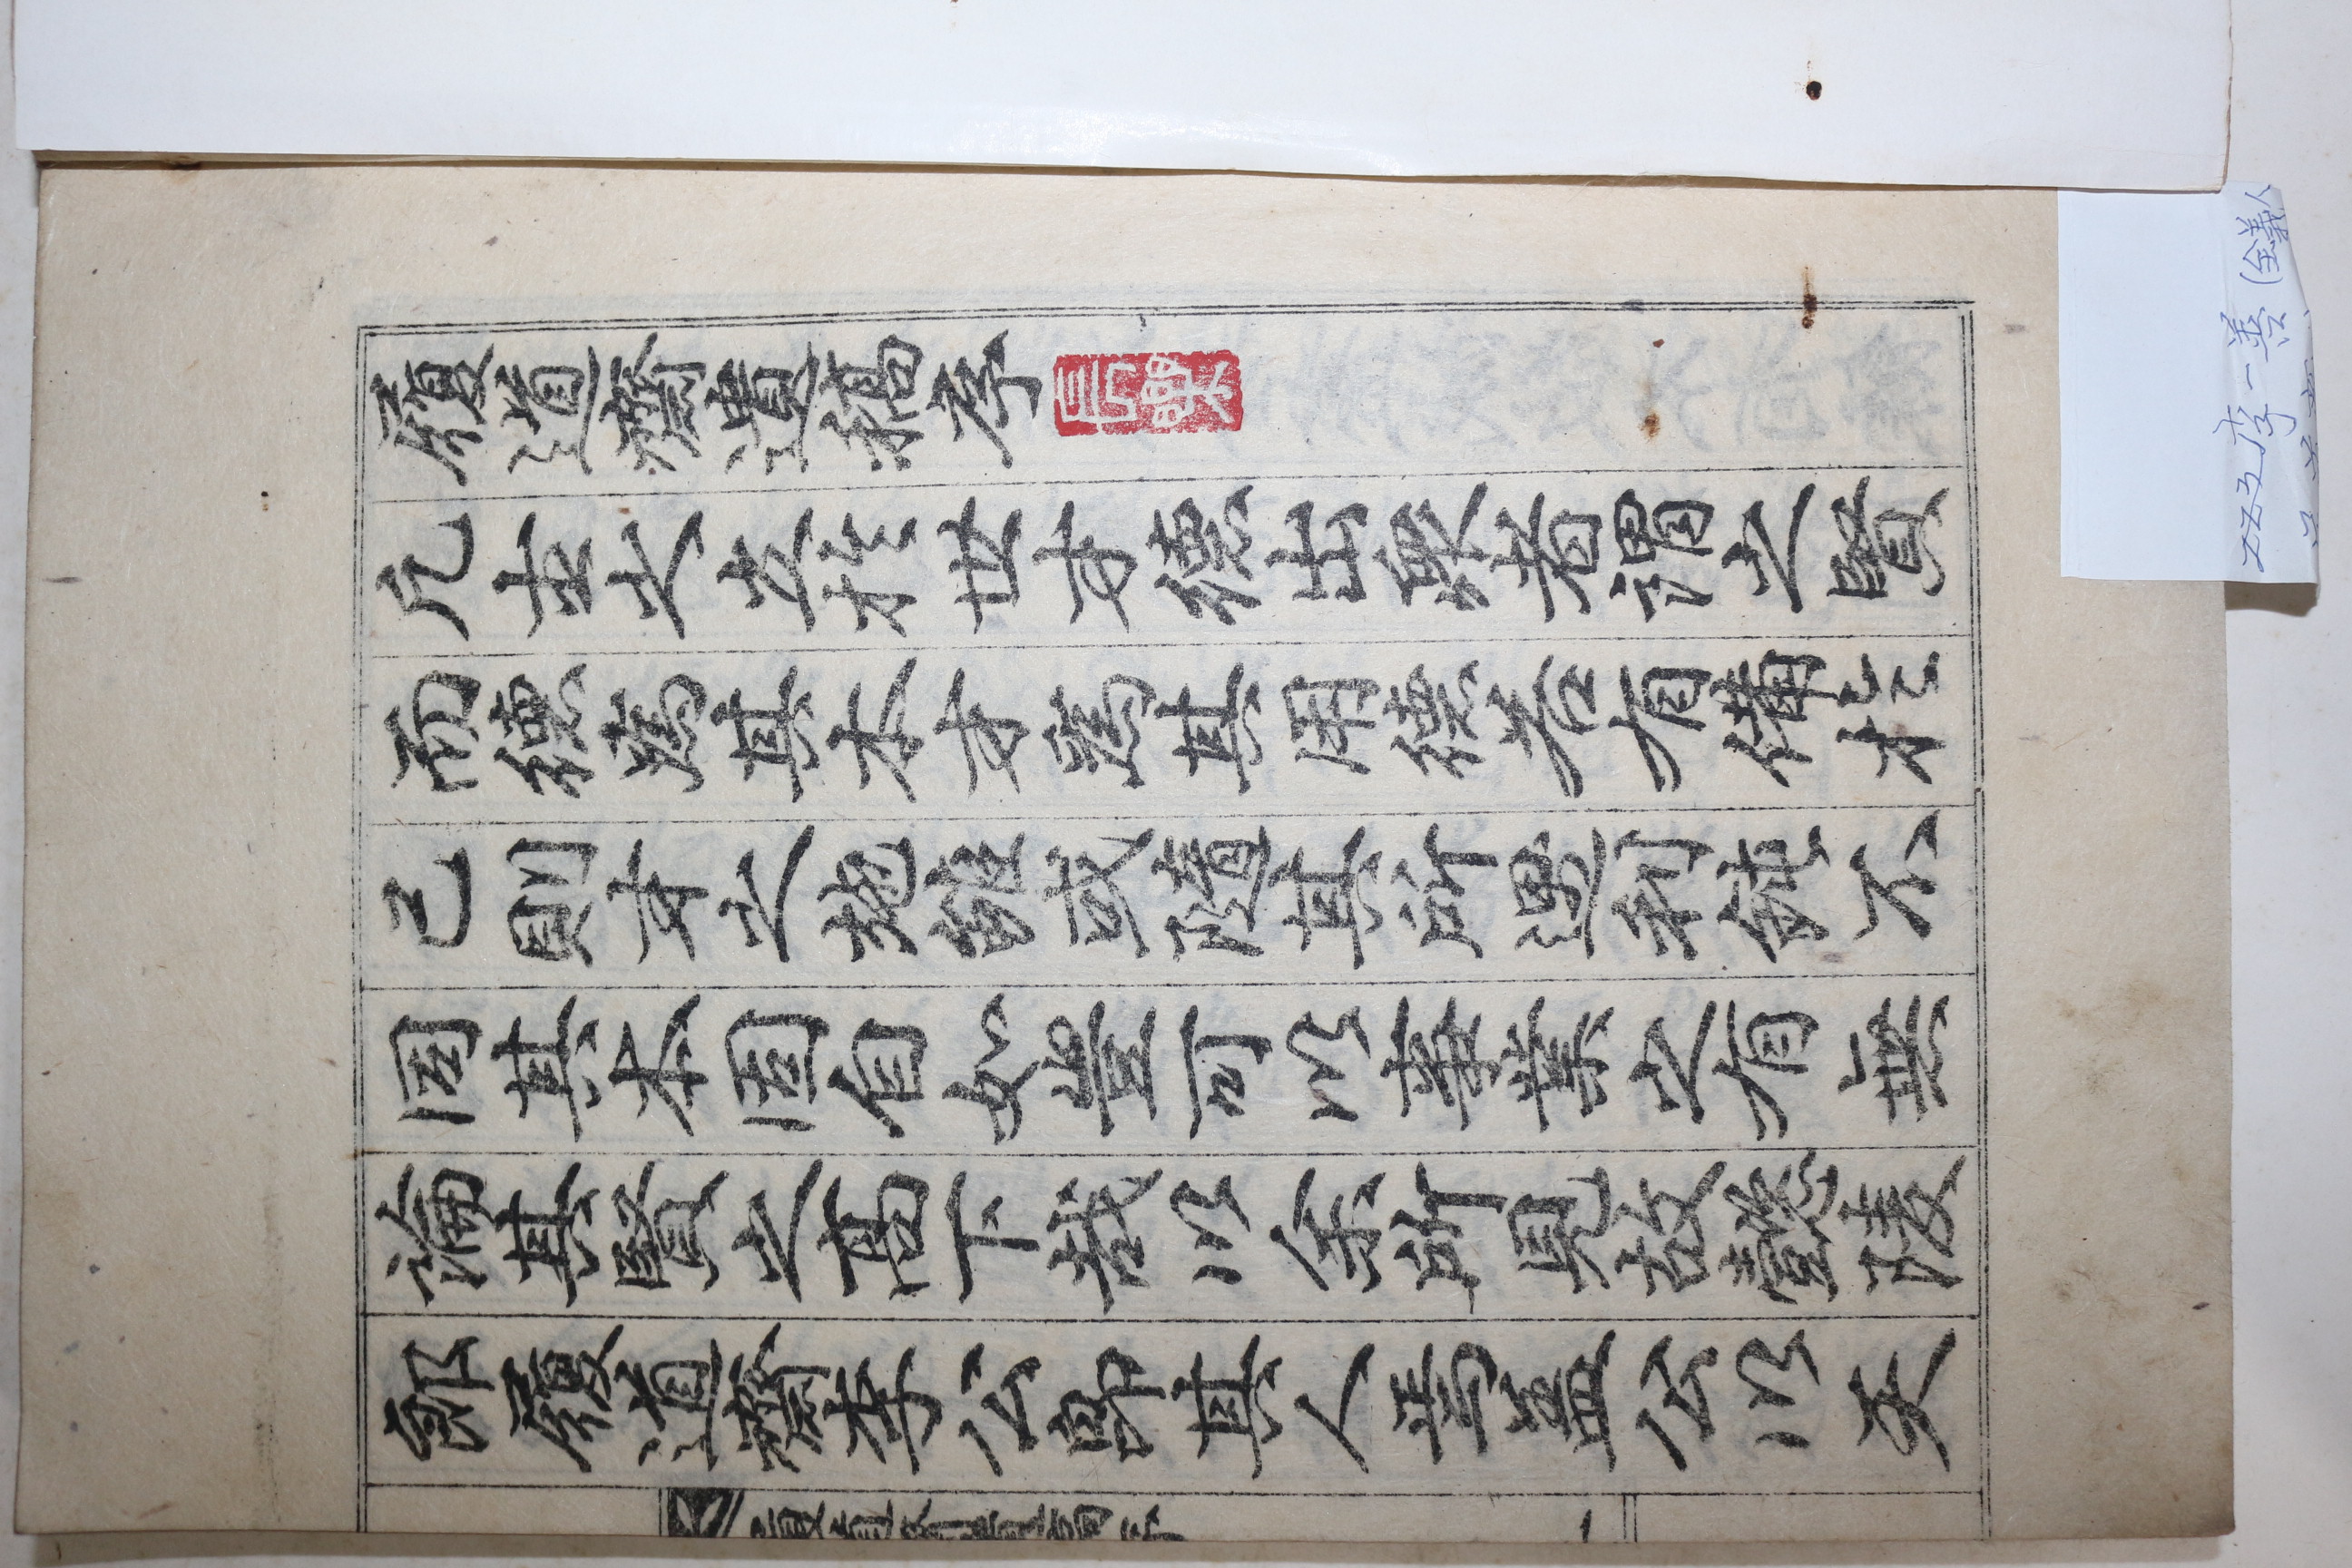 履道齋遺稿序
長樂
凡士之立於世才德出衆者謂之賢
而德爲其本才爲其用德苟有備於
己則才之施雖或隨其所遇利鈍不
固其本固自如豈可以事業之有無
論其賢之高下哉以余所見故懿陵
郎履道齋李公卽其人焉盖公以天
223 李一善 (全義人